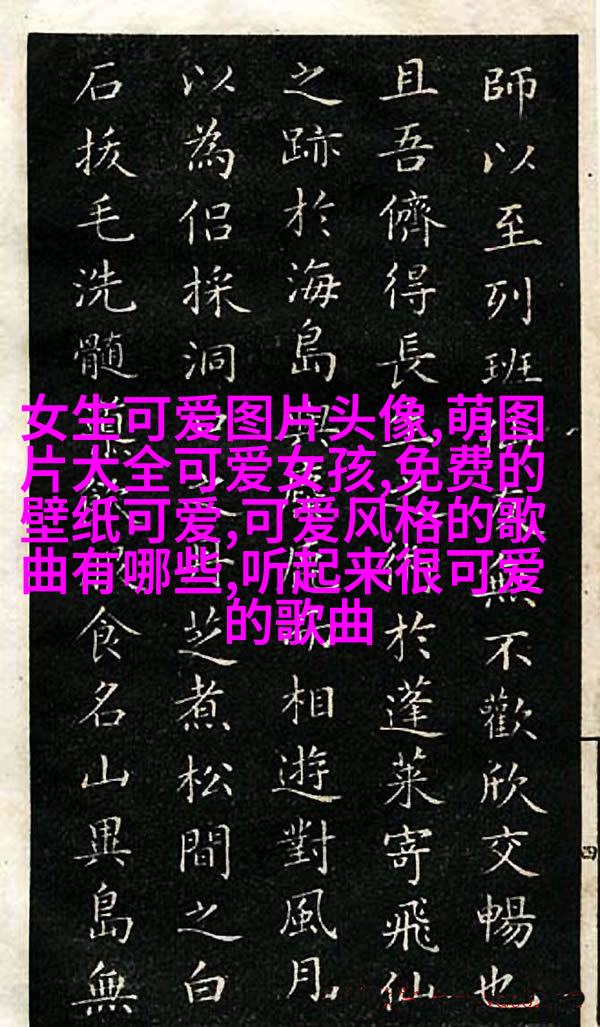 師以至列班無不歡欣交暢也
且吾儕得長於蓬萊寄飛仙
之跡於海島相遊對風月
以為侶採洞芝煮松間之白
石拔毛洗髓食名山異島無
女生可爱图片头像,萌图
片大全可爱女孩,免费的
壁纸可爱,可爱风格的歌
曲有哪些,听起来很可爱
的歌曲